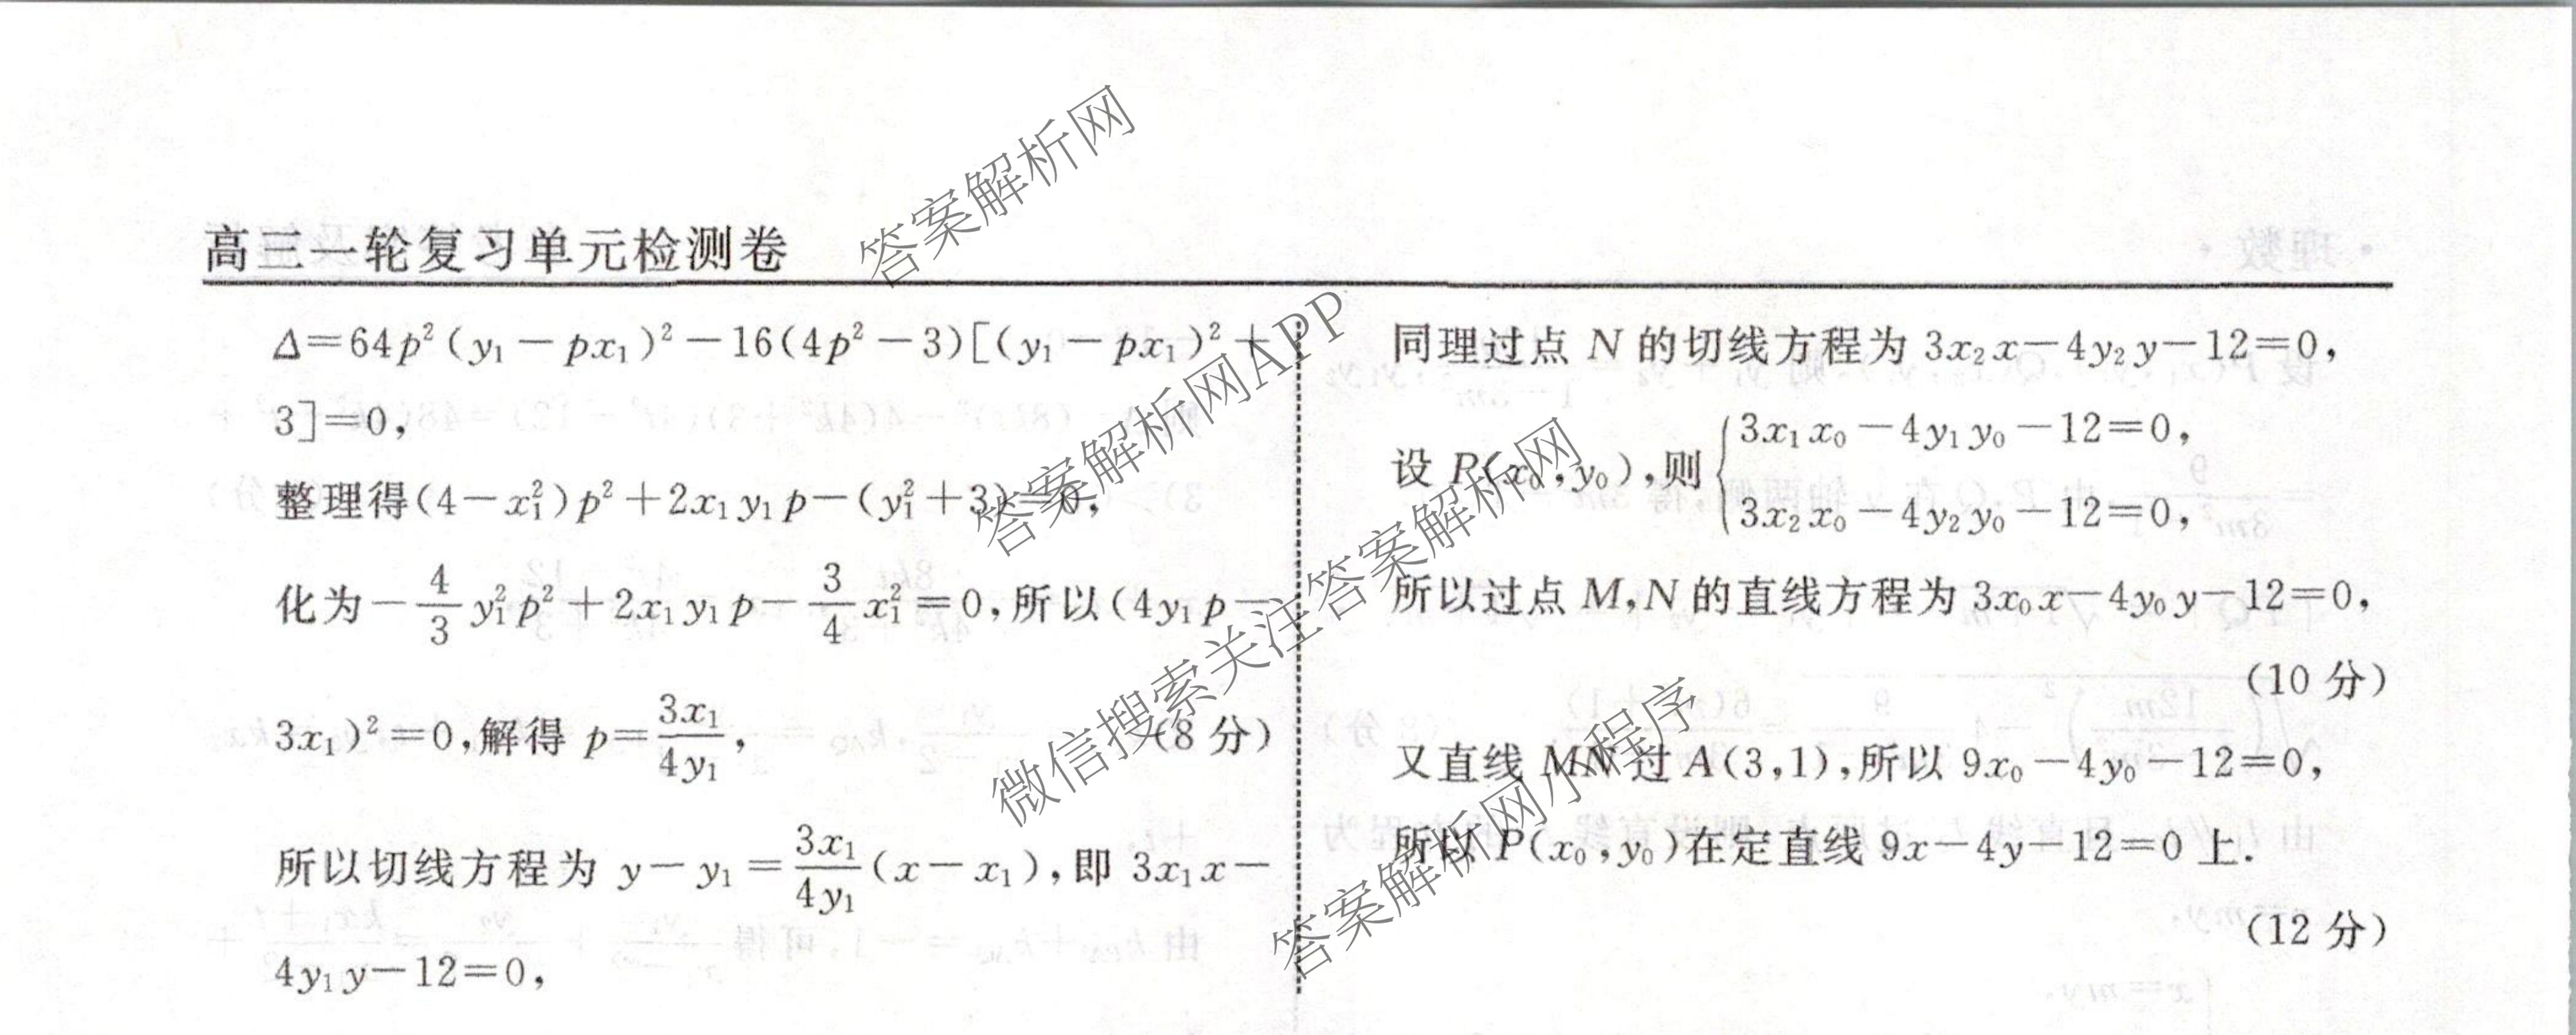 高三一轮复习单元检测卷
Δ=64p²(y₁-px₁)²-16(4p²-3)[(y₁-px₁)²+
3]=0,
整理得(4-x₁²)p²+2x₁y₁p-(y₁²+3)=0,
化为-4/3 y₁²p²+2x₁y₁p-3/4 x₁²=0,所以(4y₁p-
3x₁)²=0,解得 p=3x₁/4y₁, (8 分)
所以切线方程为 y-y₁=3x₁/4y₁(x-x₁),即 3x₁x-
4y₁y-12=0,
同理过点 N 的切线方程为 3x₂x-4y₂y-12=0,
设 P(x₀,y₀),则{3x₁x₀-4y₁y₀-12=0,
3x₂x₀-4y₂y₀-12=0,
所以过点 M,N 的直线方程为 3x₀x-4y₀y-12=0,
(10 分)
又直线 MN 过 A(3,1),所以 9x₀-4y₀-12=0,
所以 P(x₀,y₀)在定直线 9x-4y-12=0 上.
(12 分)
答案解析网
答案解析网APP
微信搜索关注答案解析网
答案解析网小程序